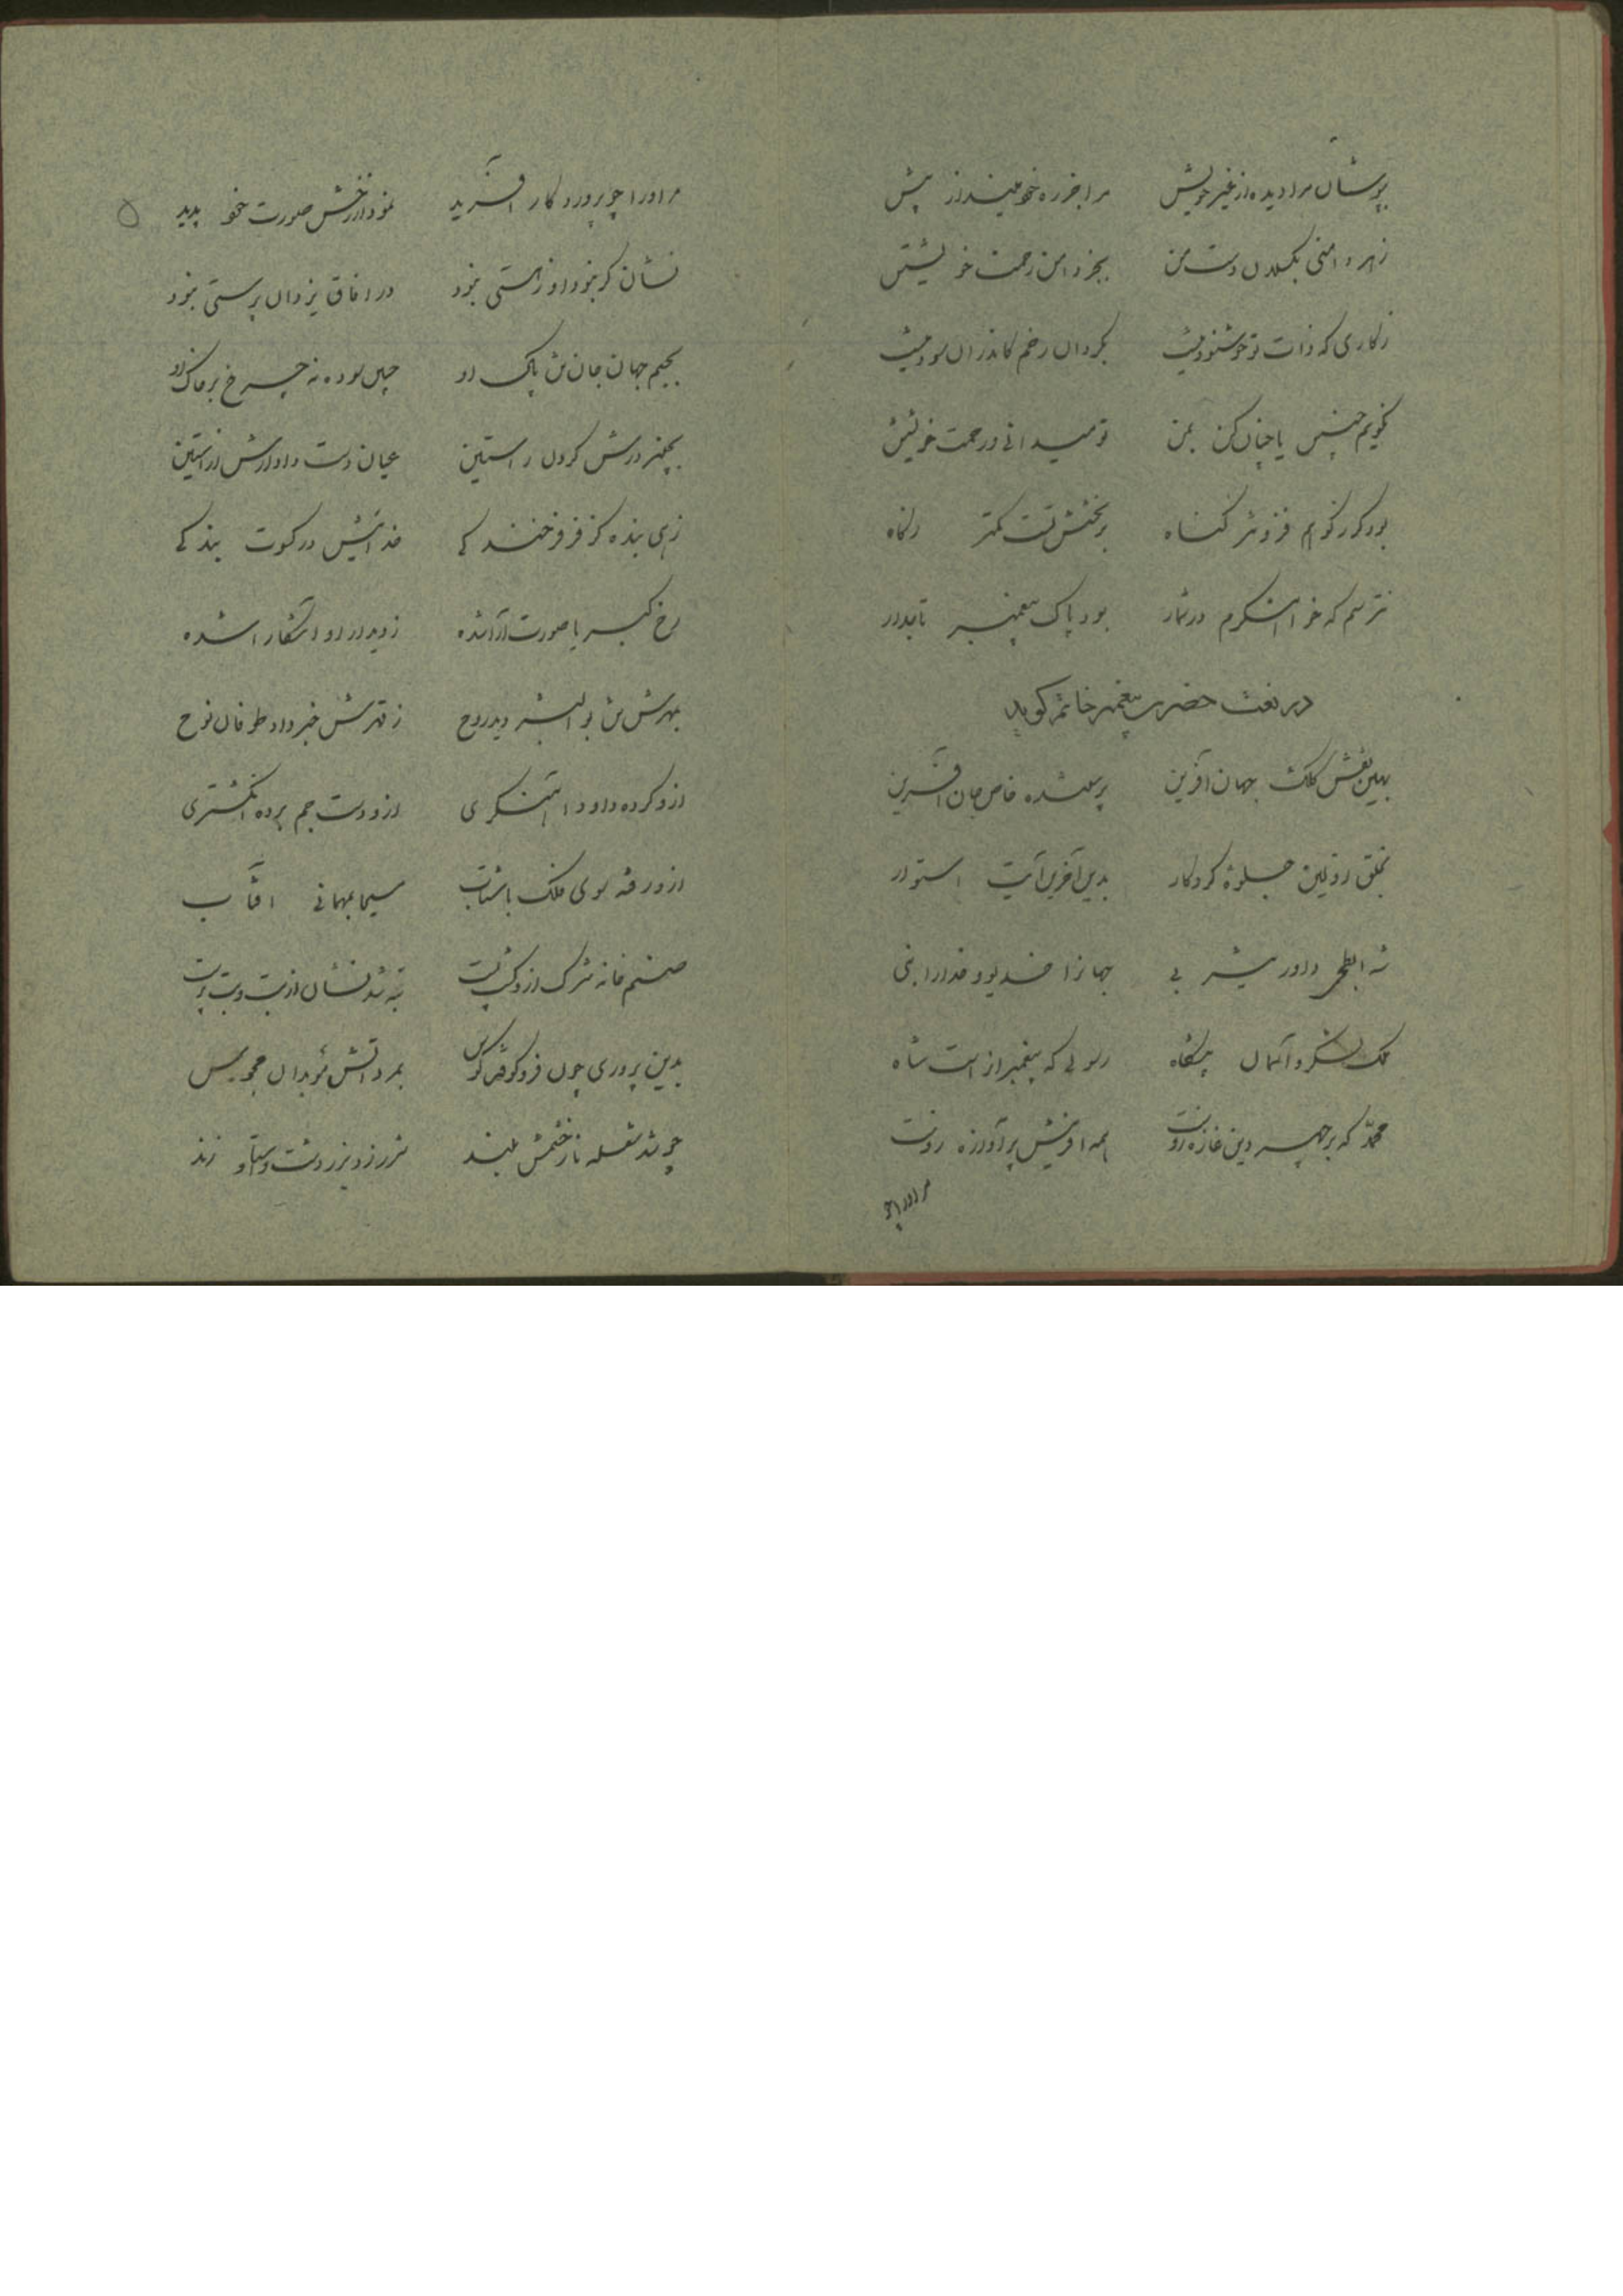 بپوشان مرا دیده از غیر خویش مرا جز ره خود مینداز پیش
ز هر دامنی بگسلان دست من بجز دامن رحمت خویشتن
ز کاری که ذات تو خوشنود نیست بگردان رخم کاندران سود نیست
نگویم چنین یا چنان کن بمن تو میدانی و رحمت خویشتن
بود گر ز کوهم فزونتر گناه بر بخشش تست کمتر ز کاه
نترسم که خواهشگرم در شمار بود پاک پیغمبر تاجدار
در نعت حضرت پیغمبر خاتم گوید
بهین نقش کلک جهان آفرین پرستنده خاص جان آفرین
بخلق اولین جلوهٔ کردگار بدین آخرین آیت استوار
شه ابطحی داور یثربی جهانرا خدیو و خدا را نبی
ملک لشکر و آسمان پیشگاه رسولی که پیغمبران راست شاه
محمد که بر چهر دین غازه زوست همه آفرینش پر آوازه زوست
مر اورا چو
مر اورا چو پروردگار آفرید نمودار رخش صورت خود پدید
نشان گر نبود او ز هستی نبود در آفاق یزدان پرستی نبود
بجسم جهان جان تن پاک او جبین سوده نه چرخ بر خاک او
بچنبر درش گردن راستین عیان دست دادارش از آستین
زهی بنده کز فر فرخندگی خدائیش در کسوت بندگی
رخ کبریا صورت آرا شده ز دیدار او آشکارا شده
بمهرش تن بوالبشر دید روح ز قهرش خبر داد طوفان نوح
ازو کرده داود آهنگری ازو دست جم برده انگشتری
ازو رفته سوی فلک باشتاب مسیحا بمهمانی آفتاب
صنم خانه شرک ازو گشت پست تبه شد نشان از بت و بت پرست
بدین پروری چون فرو کوفت کوس بمرد آتش موبدان مجوس
چو شد شعله نار خشمش بلند شرر زد بزردشت و استا و زند